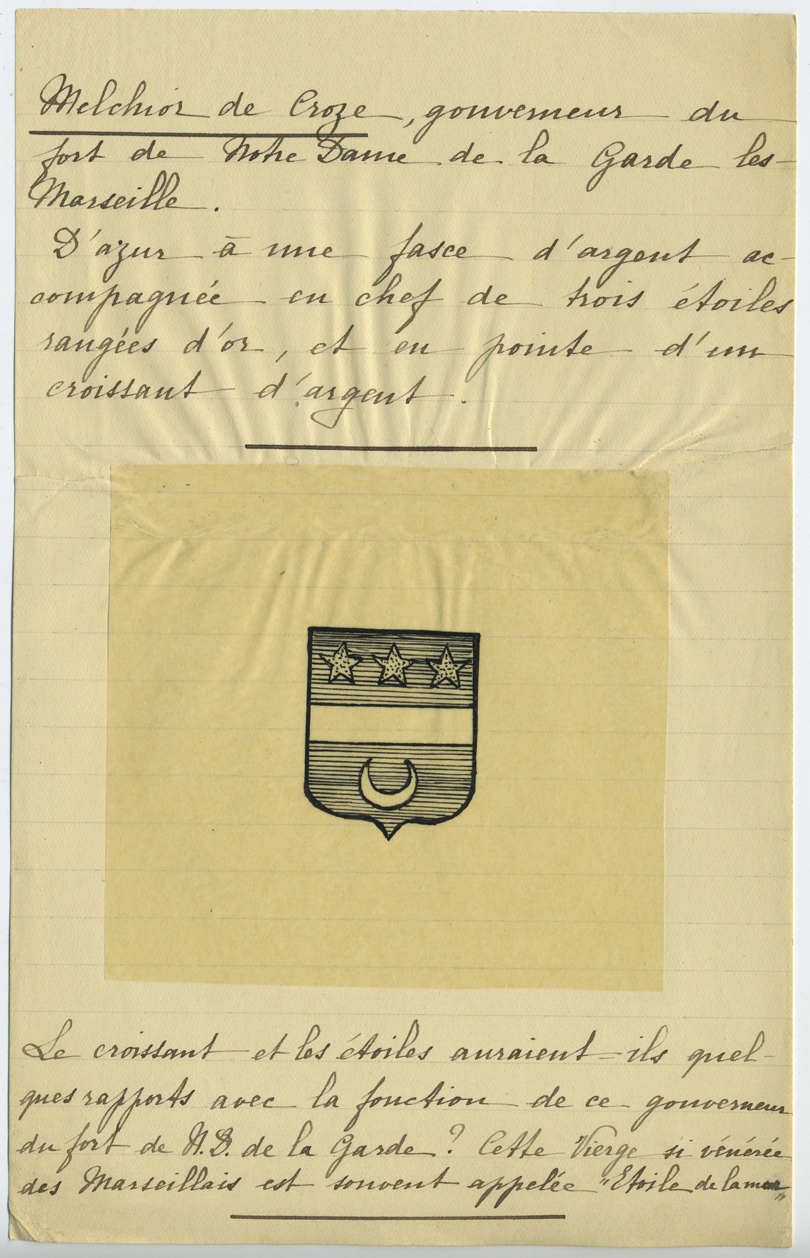 Melchior de Croze, gouverneur du
fort de Notre Dame de la Garde les-
Marseille.
D'azur à une fasce d'argent ac-
compagnée en chef de trois étoiles
rangées d'or, et en pointe d'un
croissant d'argent.
Le croissant et les étoiles auraient-ils quel-
ques rapports avec la fonction de ce gouverneur
du fort de N.D. de la Garde? Cette Vierge si vénérée
des Marseillais est souvent appelée "Etoile de la mer"